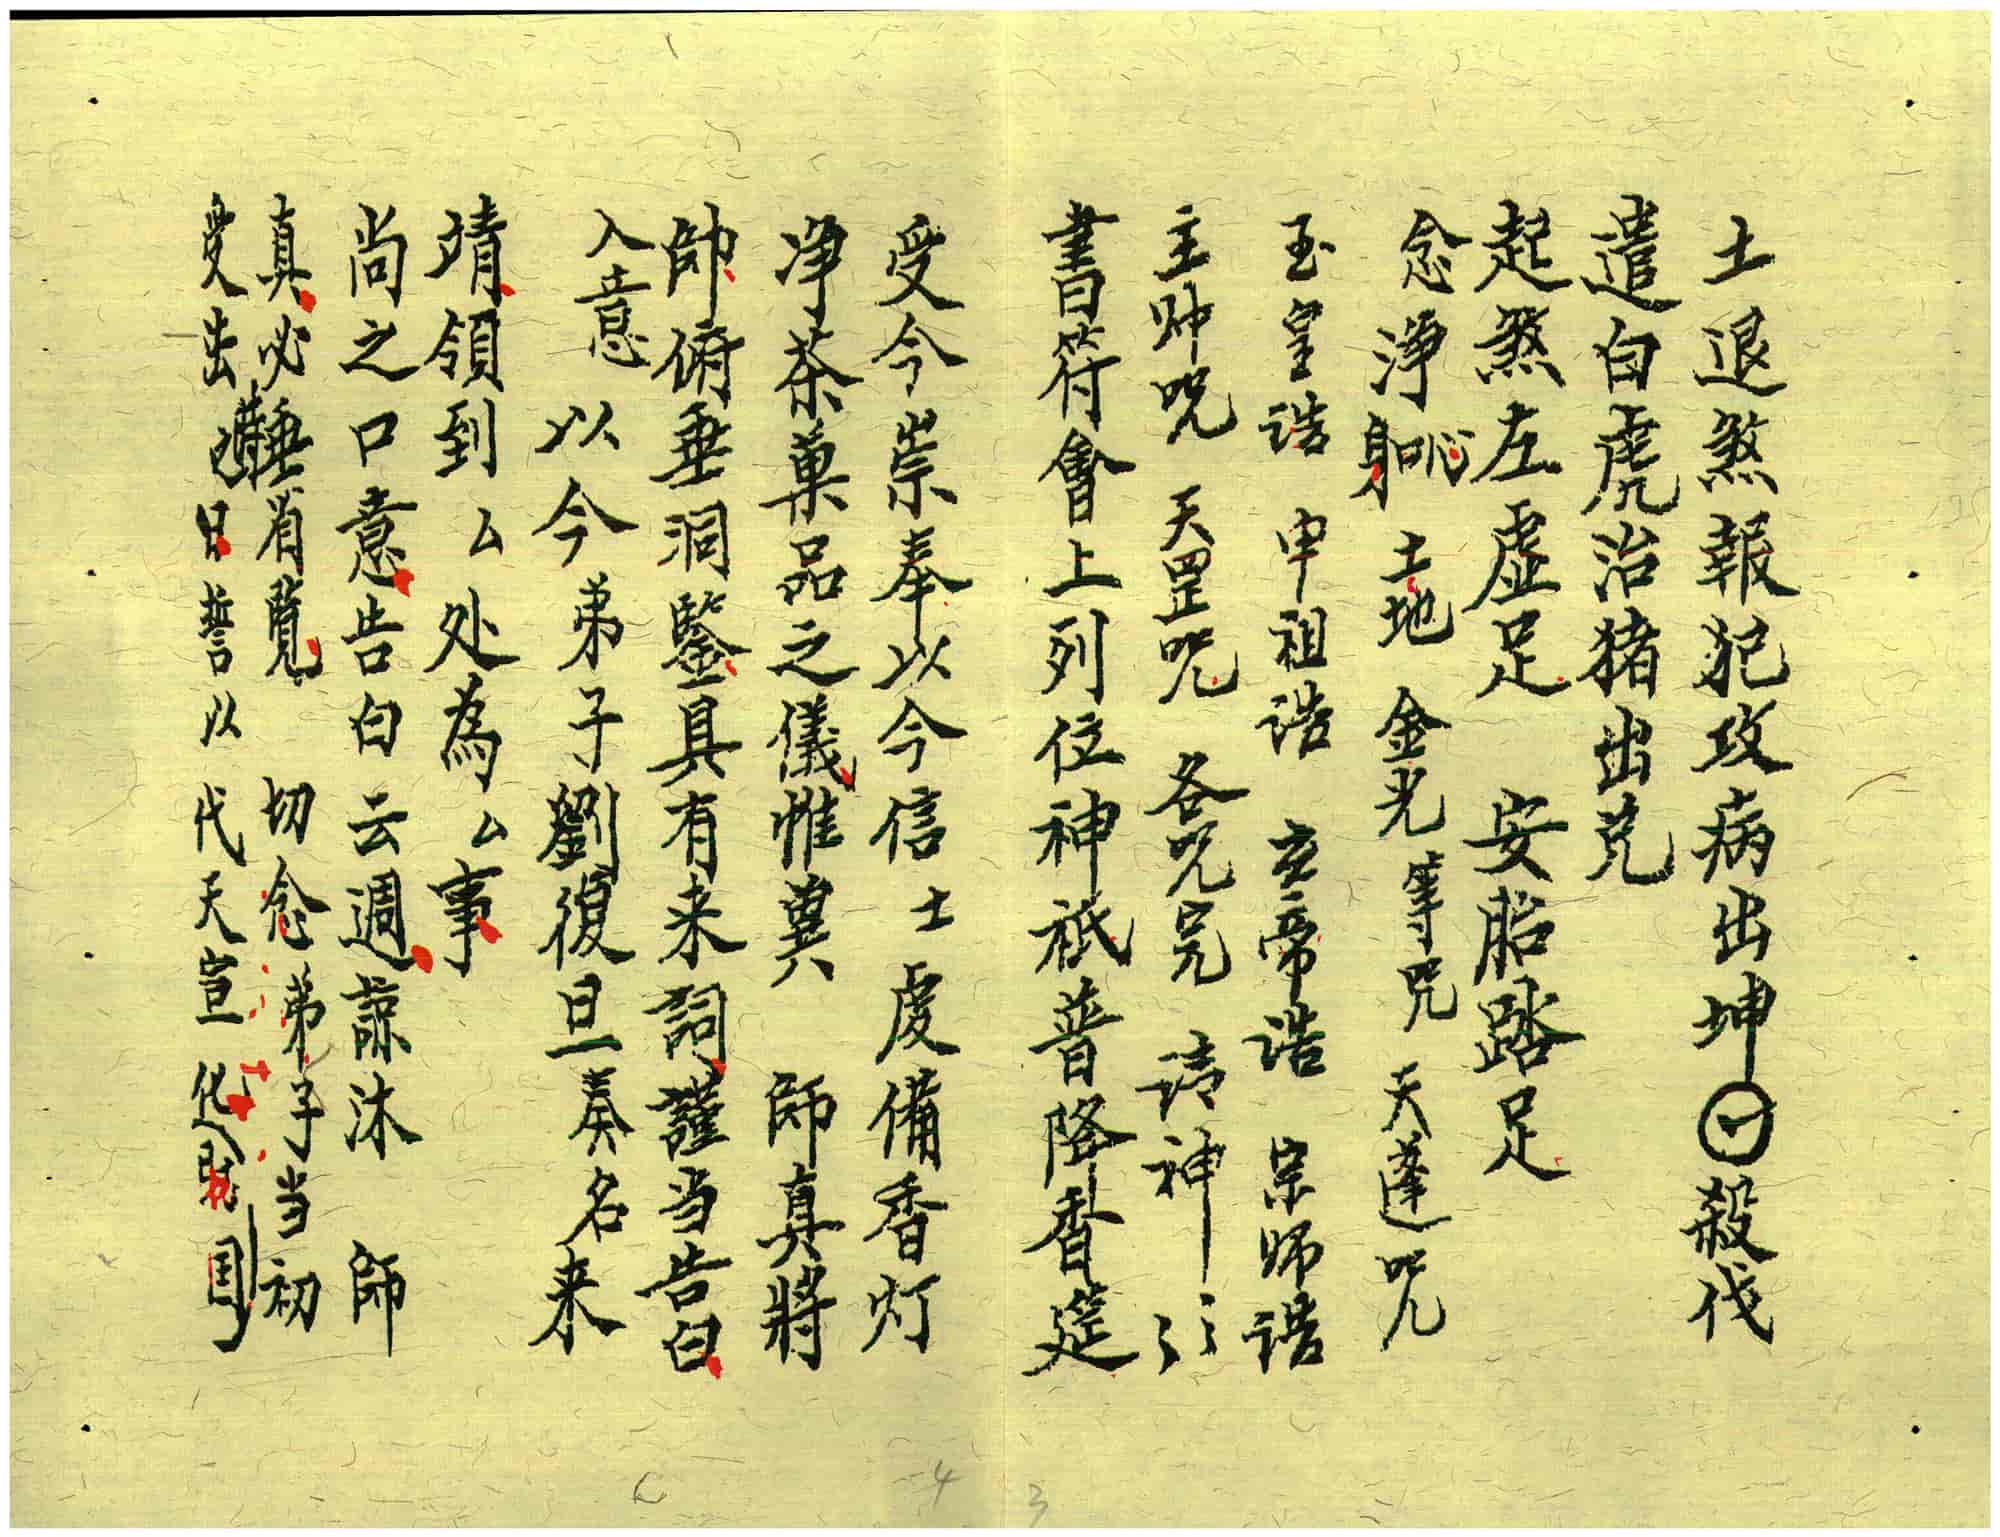 土退煞報犯攻病出坤㊀殺伐
遣白虎治猪出兇
起煞左虚足 安胎踏足
念淨身口心 土地 金光 等咒 天蓬咒
玉皇诰 申祖诰 玄帝诰 宗师诰
主帅咒 天罡咒 各咒完 请神
書符會上列位神祇普降香筵
受今崇奉以今信士 虔備香灯
净茶菓品之儀惟冀 師真將
帥俯垂洞鑒具有来詞謹当告白
入意 以今弟子劉復旦奏名来
靖領到厶处為厶事
尚之口意告白云週諒沐 師
真必垂省覽 切念弟子当初
受出 日誓以代天宣化
3
4